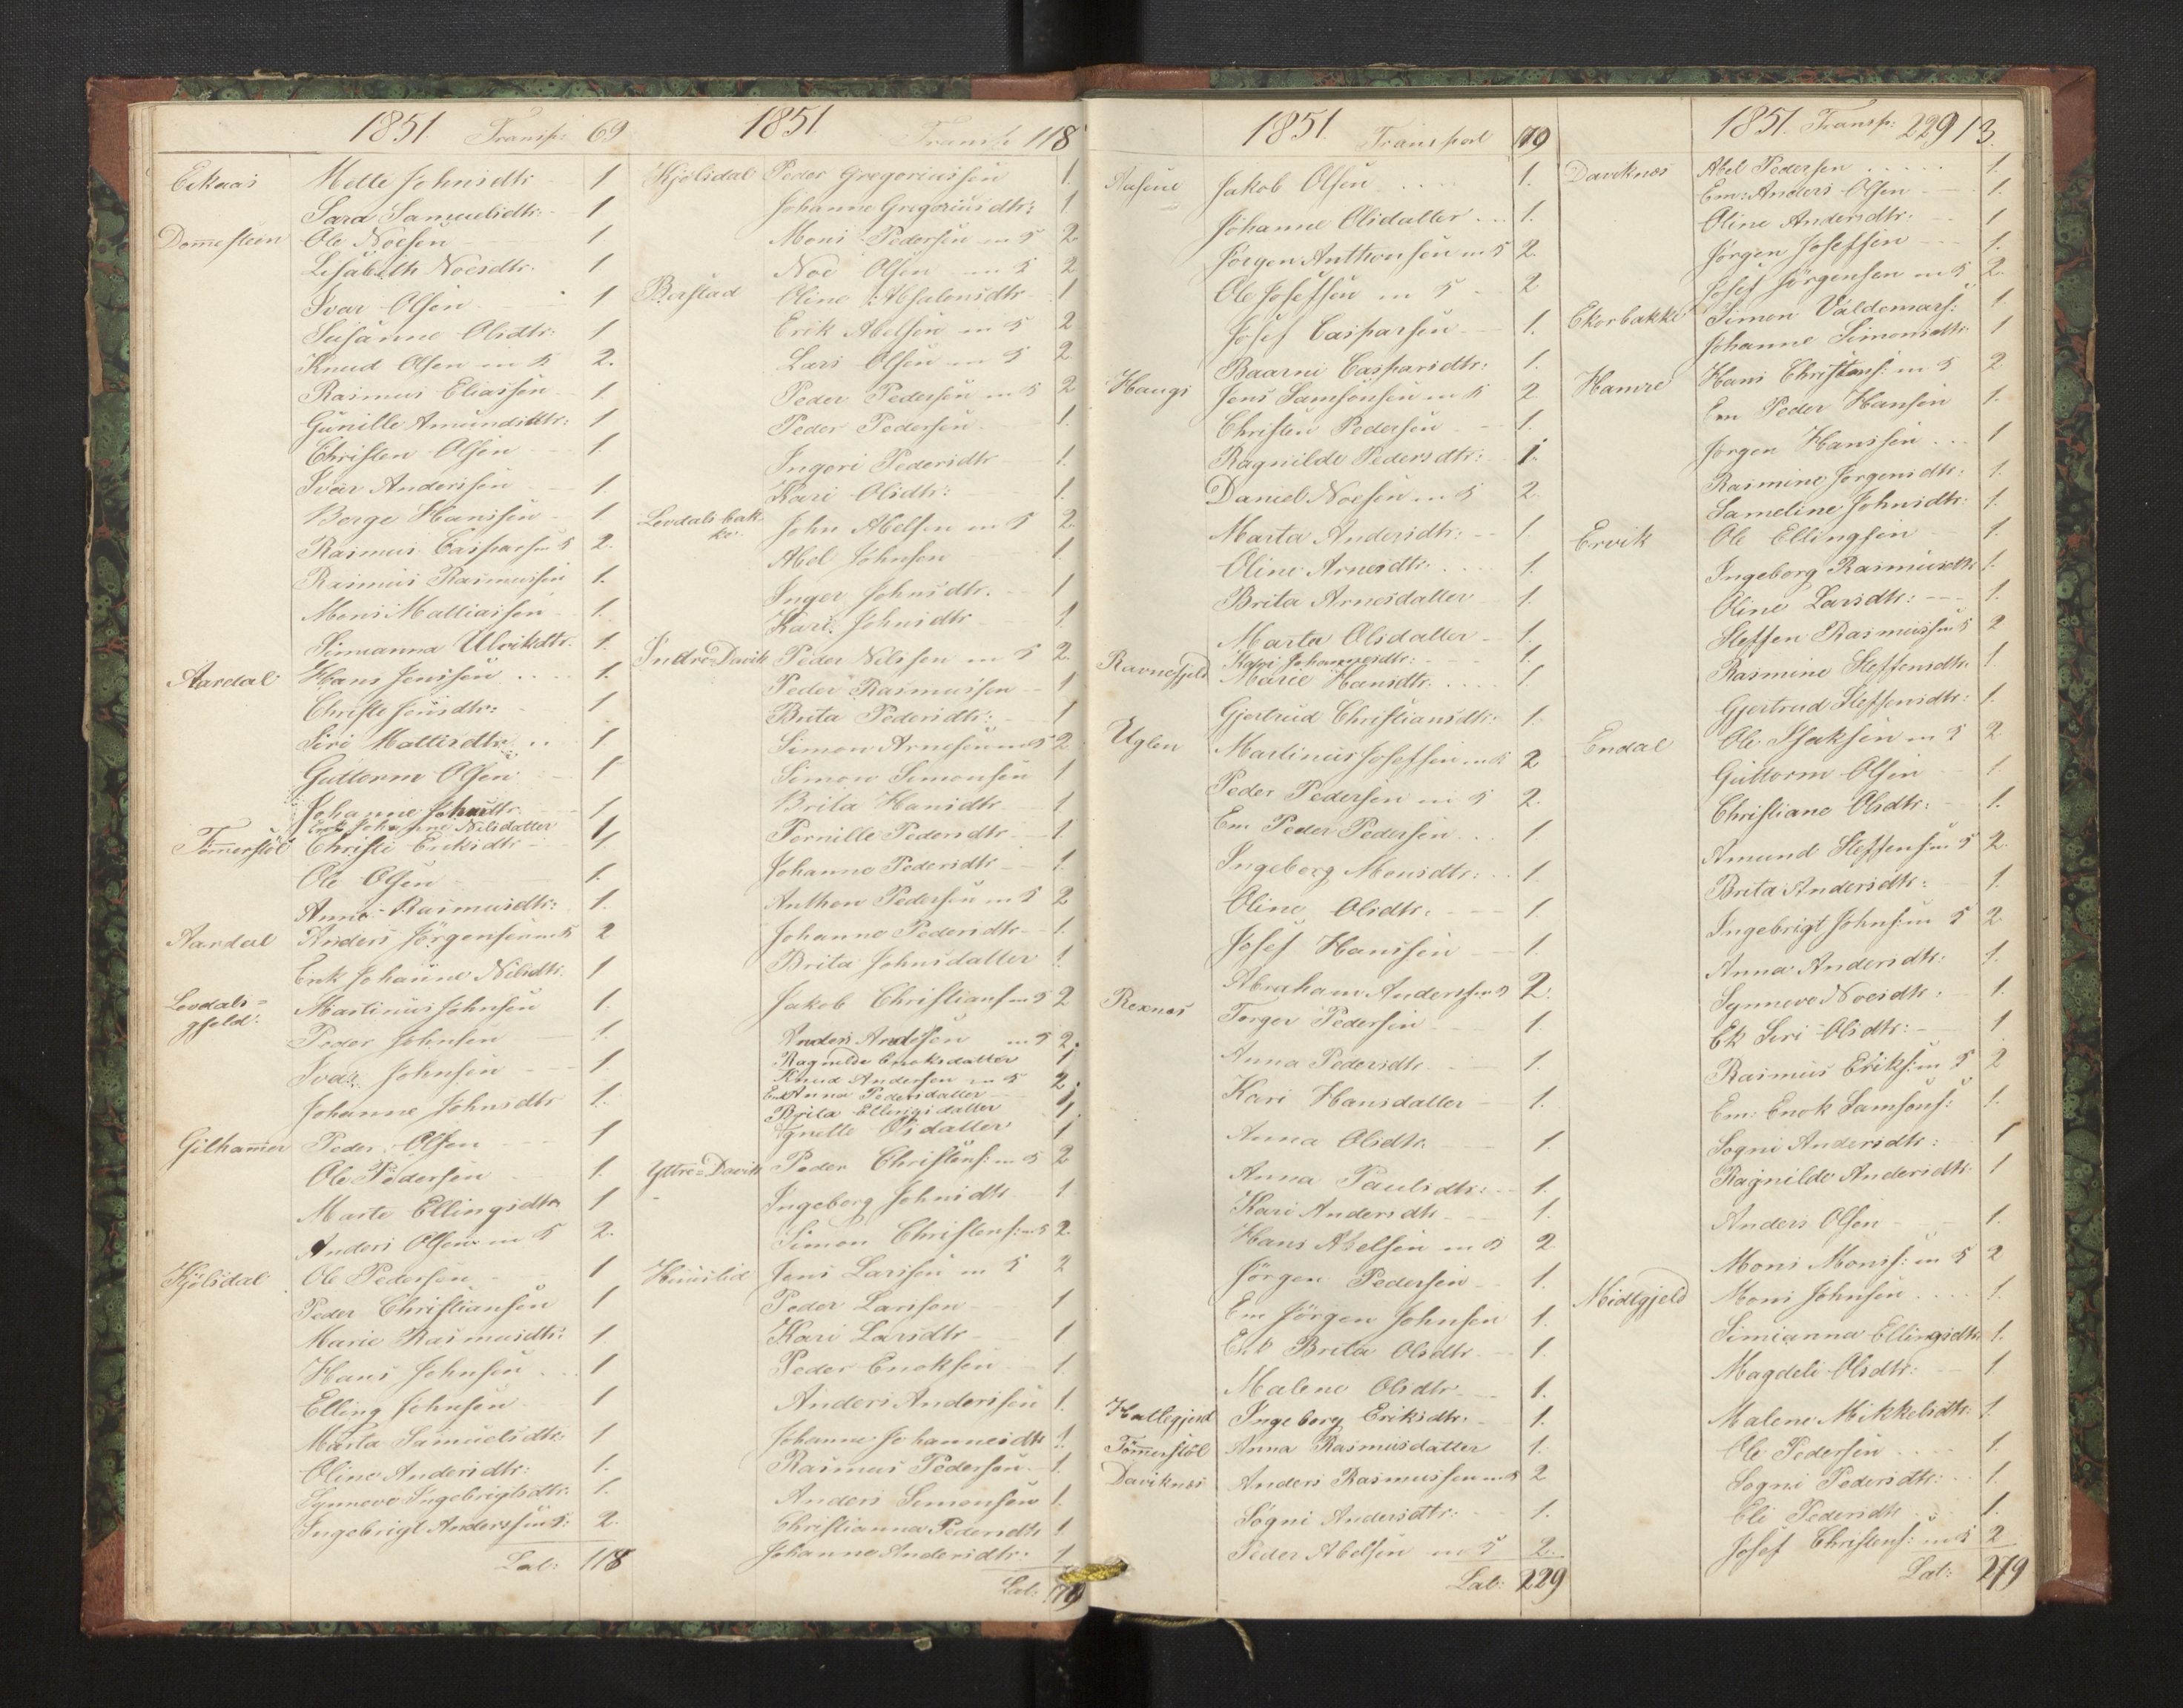 1851. Transp: 69
Eikaas Mette Johnsdtr 1
Sara Samuelsdtr: 1
Domesteen Ole Noesen 1.
Lisabeth Noesdtr. 1
Ivar Olsen 1
Susanne Olsdtr: 1
Knud Olsen m 5 2.
Rasmus Eliassen 1.
Gunille Amundsdtr: 1
Christen Olsen 1.
Ivar Anderssen 1.
Berge Hanssen 1
Rasmus Casparsen 5 2.
Rasmus Rasmussen 1.
Mons Mattiassen 1.
Simianna Ulrikdtr. 1.
Aardal Hans Jenssen 1.
Christe Jensdtr: 1
Siri Mattisdtr 1.
Guttorm Olsen 1
Johanne Johnsdtr. 1
Enk Johanne Nilsdatter 1
Tømmerstøl Christi Eriksdtr 1.
Ole Olsen 1.
Anne Rasmusdtr: 1.
Aardal Anders Jørgensen m 5 2
Enk Johanne Nilsdtr. 1
Levdals=
gjeld. Martinus Johnsen 1.
Peder Johnsen 1.
Ivar Johnsen 1
Johanne Johnsdtr 1.
Gilhammer Peder Olsen 1
Ole Pedersen 1.
Marte Ellingsdtr 1
Anders Olsen m 5 2.
Hjølsdal Ole Pedersen 1
Peder Christiansen 1
Marie Rasmusdtr: 1
Hans Johnsen 1
Elling Johnsen 1
Marta Samuelsdtr: 1
Oline Andersdtr: 1.
Synneve Ingebrigtsdtr: 1.
Ingebrigt Anderssen 5: 2.
Lat: 118
1851 Transp 118
Hjølsdal Peder Gregoriussen 1.
Johanne Gregoriusdtr: 1
Mons Pedersen m 5 2
Noe Olsen m 5 2
Berstad Oline Absalonsdtr 1
Erik Abelsen m 5 2
Lars Olsen m 5 2
Peder Pedersen m 5 2
Peder Pedersen 1.
Ingeri Pedersdtr 1.
Kari Olsdtr: 1.
Levdalsbak-
ke. John Abelsen m 5 2.
Abel Johnsen 1.
Inger Johnsdtr. 1
Kari Johnsdtr 1
Indre=Davik Peder Nilssen m 5 2.
Peder Rasmussen 1
Brita Pedersdtr: 1
Simon Arnesen m 5 2
Simon Simonsen 1
Brita Hansdtr 1
Pernille Pedersdtr 1.
Johanne Pedersdtr 1.
Anthon Pedersen m 5 2
Johanne Pedersdtr 1.
Brita Johnsdatter 1
Jakob Christians m 5 2
Anders Andersen m 5 2.
Ragnilde Enoksdatter 1
Knud Andersen m 5 2.
Enk Anna Pedersdatter 1
Brita Ellingsdatter 1.
Agnette Olsdatter 1
Yttre=Davik Peder Christens: m 5 2
Ingeborg Johnsdtr 1
Simon Christens: m 5 2.
Jens Larssen m 5 2
Peder Larssen 1
Kari Larsdtr 1
Peder Enoksen 1.
Anders Anderssen 1.
Johanne Johannesdtr 1.
Rasmus Pedersen 1.
Anders Simonsen 1.
Christianna Pedersdtr 1
Johanne Andersdtr: 1
Lat: 179
1851. Transport 179
Aasene Jakob Olsen 1.
Johanne Olsdatter 1.
Jørgen Anthonsen m 5 2.
Ole Josefsen m 5 2
Josef Casparsen 1.
Baarni Caspersdtr: 1.
Hauge Jens Samsonsen m 5 2
Christen Pedersen 1.
Ragnilde Pedersdtr: 1.
Daniel Noesen m 5 2.
Marta Andersdtr: 1.
Oline Arnesdtr 1.
Brita Arnesdatter 1.
Marta Olsdatter 1.
Ravnefjeld Kari Johannesdtr: 1.
Marie Hansdtr. 1
Gjertrud Christiansdtr: 1.
Uglen Martinus Josefsen m 5 2
Peder Pedersen m 5 2.
Em Peder Pedersen 1.
Ingeborg Monsdtr: 1.
Oline Olsdtr. 1.
Josef Hanssen 1.
Abraham Anderssen 5 2.
Rexnæs Torger Pedersen 1.
Anna Pedersdtr. 1.
Kari Hansdatter 1.
Anna Olsdtr. 1.
Anna Paulsdtr: 1.
Kari Andersdtr 1.
Hans Abelsen m 5 2
Jørgen Pedersen 1.
Em Jørgen Johnsen 1.
Enk Brita Olsdtr 1.
Malene Olsdtr 1.
Hallegjerd Ingeborg Eriksdtr. 1.
Tømmerstøl Anna Rasmusdatter 1.
Daviknæs Anders Rasmussen m 5 2
Søgni Andersdtr: 1.
Peder Abelsen m 5 2.
Lat: 229
1851. Transp: 229 / 3.
Daviknæs Abel Pedersen 1.
Em: Anders Olsen 1.
Oline Andersdtr: 1
Jørgen Josefsen 1.
Josef Jørgensen m 5 2.
Ekorbakke Simon Valdemars: 1.
Johanne Simonsdtr 1
Hamre Hans Christens: m 5 2
Em Peder Hansen 1.
Jørgen Hanssen 1
Rasmine Jørgensdtr: 1.
Sameline Johnsdtr: 1.
Ervik Ole Ellingsen 1.
Ingeborg Rasmusdtr 1.
Oline Larsdtr: 1.
Steffen Rasmussen 5 2
Rasmine Steffensdtr. 1
Gjertrud Steffensdtr: 1.
Endal Ole Isaksen m 5 2.
Guttorm Olsen 1
Christiane Olsdtr: 1.
Amund Steffensen 5 2.
Brita Andersdtr: 1.
Ingebrigt Johns: m 5 2
Anna Andersdtr: 1.
Synneve Noesdtr: 1.
Ek Siri Olsdtr: 1
Rasmus Eriks: m 5 2
Em: Enok Samsons: 1.
Søgni Andersdtr: 1
Ragnilde Andersdtr: 1
Anders Olsen 1.
Mons Monss: m 5 2
Midtgjeld Mons Johnsen 1.
Simianna Ellingsdtr: 1.
Magdeli Olsdtr: 1
Malene Mikkelsdtr: 1.
Ole Pedersen 1.
Søgni Pedersdtr: 1.
Eli Pedersdtr 1.
Josef Christens: m 5 2
Lat: 279